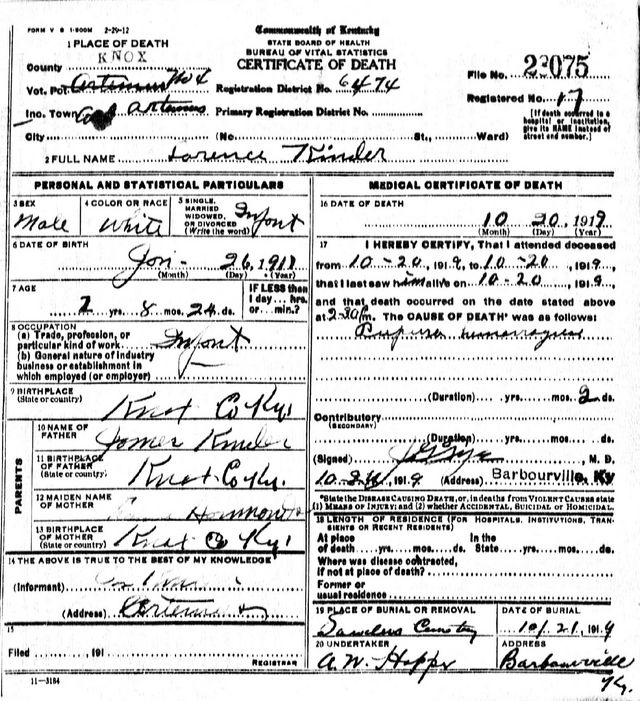 FORM V S 1-500M 2-29-12
Commonwealth of Kentucky
STATE BOARD OF HEALTH
BUREAU OF VITAL STATISTICS
CERTIFICATE OF DEATH
1 PLACE OF DEATH
KNOX
County
Vot. Pct. Artemus No 4
Registration District No. 6474
File No. 23075
Registered No. 17
Inc. Town Artemus
Primary Registration District No.
[If death occurred in a
hospital or institution,
give its NAME instead of
street and number.]
City (No. St., Ward)
2 FULL NAME Lorence Kinder
PERSONAL AND STATISTICAL PARTICULARS
3 SEX
Male
4 COLOR OR RACE
White
5 SINGLE,
MARRIED
WIDOWED,
OR DIVORCED
(Write the word)
Infont
6 DATE OF BIRTH
Jon- 26, 191
(Month) (Day) (Year)
7 AGE
2 yrs. 8 mos. 24 ds.
IF LESS than
1 day... hrs.
or ... min.?
8 OCCUPATION
(a) Trade, profession, or
particular kind of work
Infont
(b) General nature of industry
business or establishment in
which employed (or employer)
9 BIRTHPLACE
(State or country)
Knox Co Ky.
PARENTS
10 NAME OF
FATHER
Jomes Kinder
11 BIRTHPLACE
OF FATHER
(State or country)
Knox Co Ky.
12 MAIDEN NAME
OF MOTHER
13 BIRTHPLACE
OF MOTHER
(State or country)
Knox Co Ky
14 THE ABOVE IS TRUE TO THE BEST OF MY KNOWLEDGE
(Informant)
(Address) Artemus
15
Filed , 191
REGISTRAR
11-3184
MEDICAL CERTIFICATE OF DEATH
16 DATE OF DEATH
10 20, 1919
(Month) (Day) (Year)
17 I HEREBY CERTIFY, That I attended deceased
from 10-20, 1919, to 10-20, 1919,
that I last saw him alive on 10-20, 1919
and that death occurred on the date stated above
at 2-30 Pm. The CAUSE OF DEATH* was as follows:
Purpura
(Duration) yrs. mos. 2 ds.
Contributory
(SECONDARY)
(Duration) yrs. mos. ds.
(Signed) , M. D.
1919 (Address) Barbourville, Ky
*State the DISEASE CAUSING DEATH, or, in deaths from VIOLENT CAUSES state
(1) MEANS OF INJURY; and (2) whether ACCIDENTAL, SUICIDAL or HOMICIDAL.
18 LENGTH OF RESIDENCE (FOR HOSPITALS, INSTITUTIONS, TRAN-
SIENTS OR RECENT RESIDENTS)
At place In the
of death yrs. mos. ds. State yrs. mos. ds.
Where was disease contracted,
if not at place of death?
Former or
usual residence
19 PLACE OF BURIAL OR REMOVAL
Cemetry
DATE OF BURIAL
10/21, 1919
20 UNDERTAKER
A. W. Hopper
ADDRESS
Barbourville
Ky.